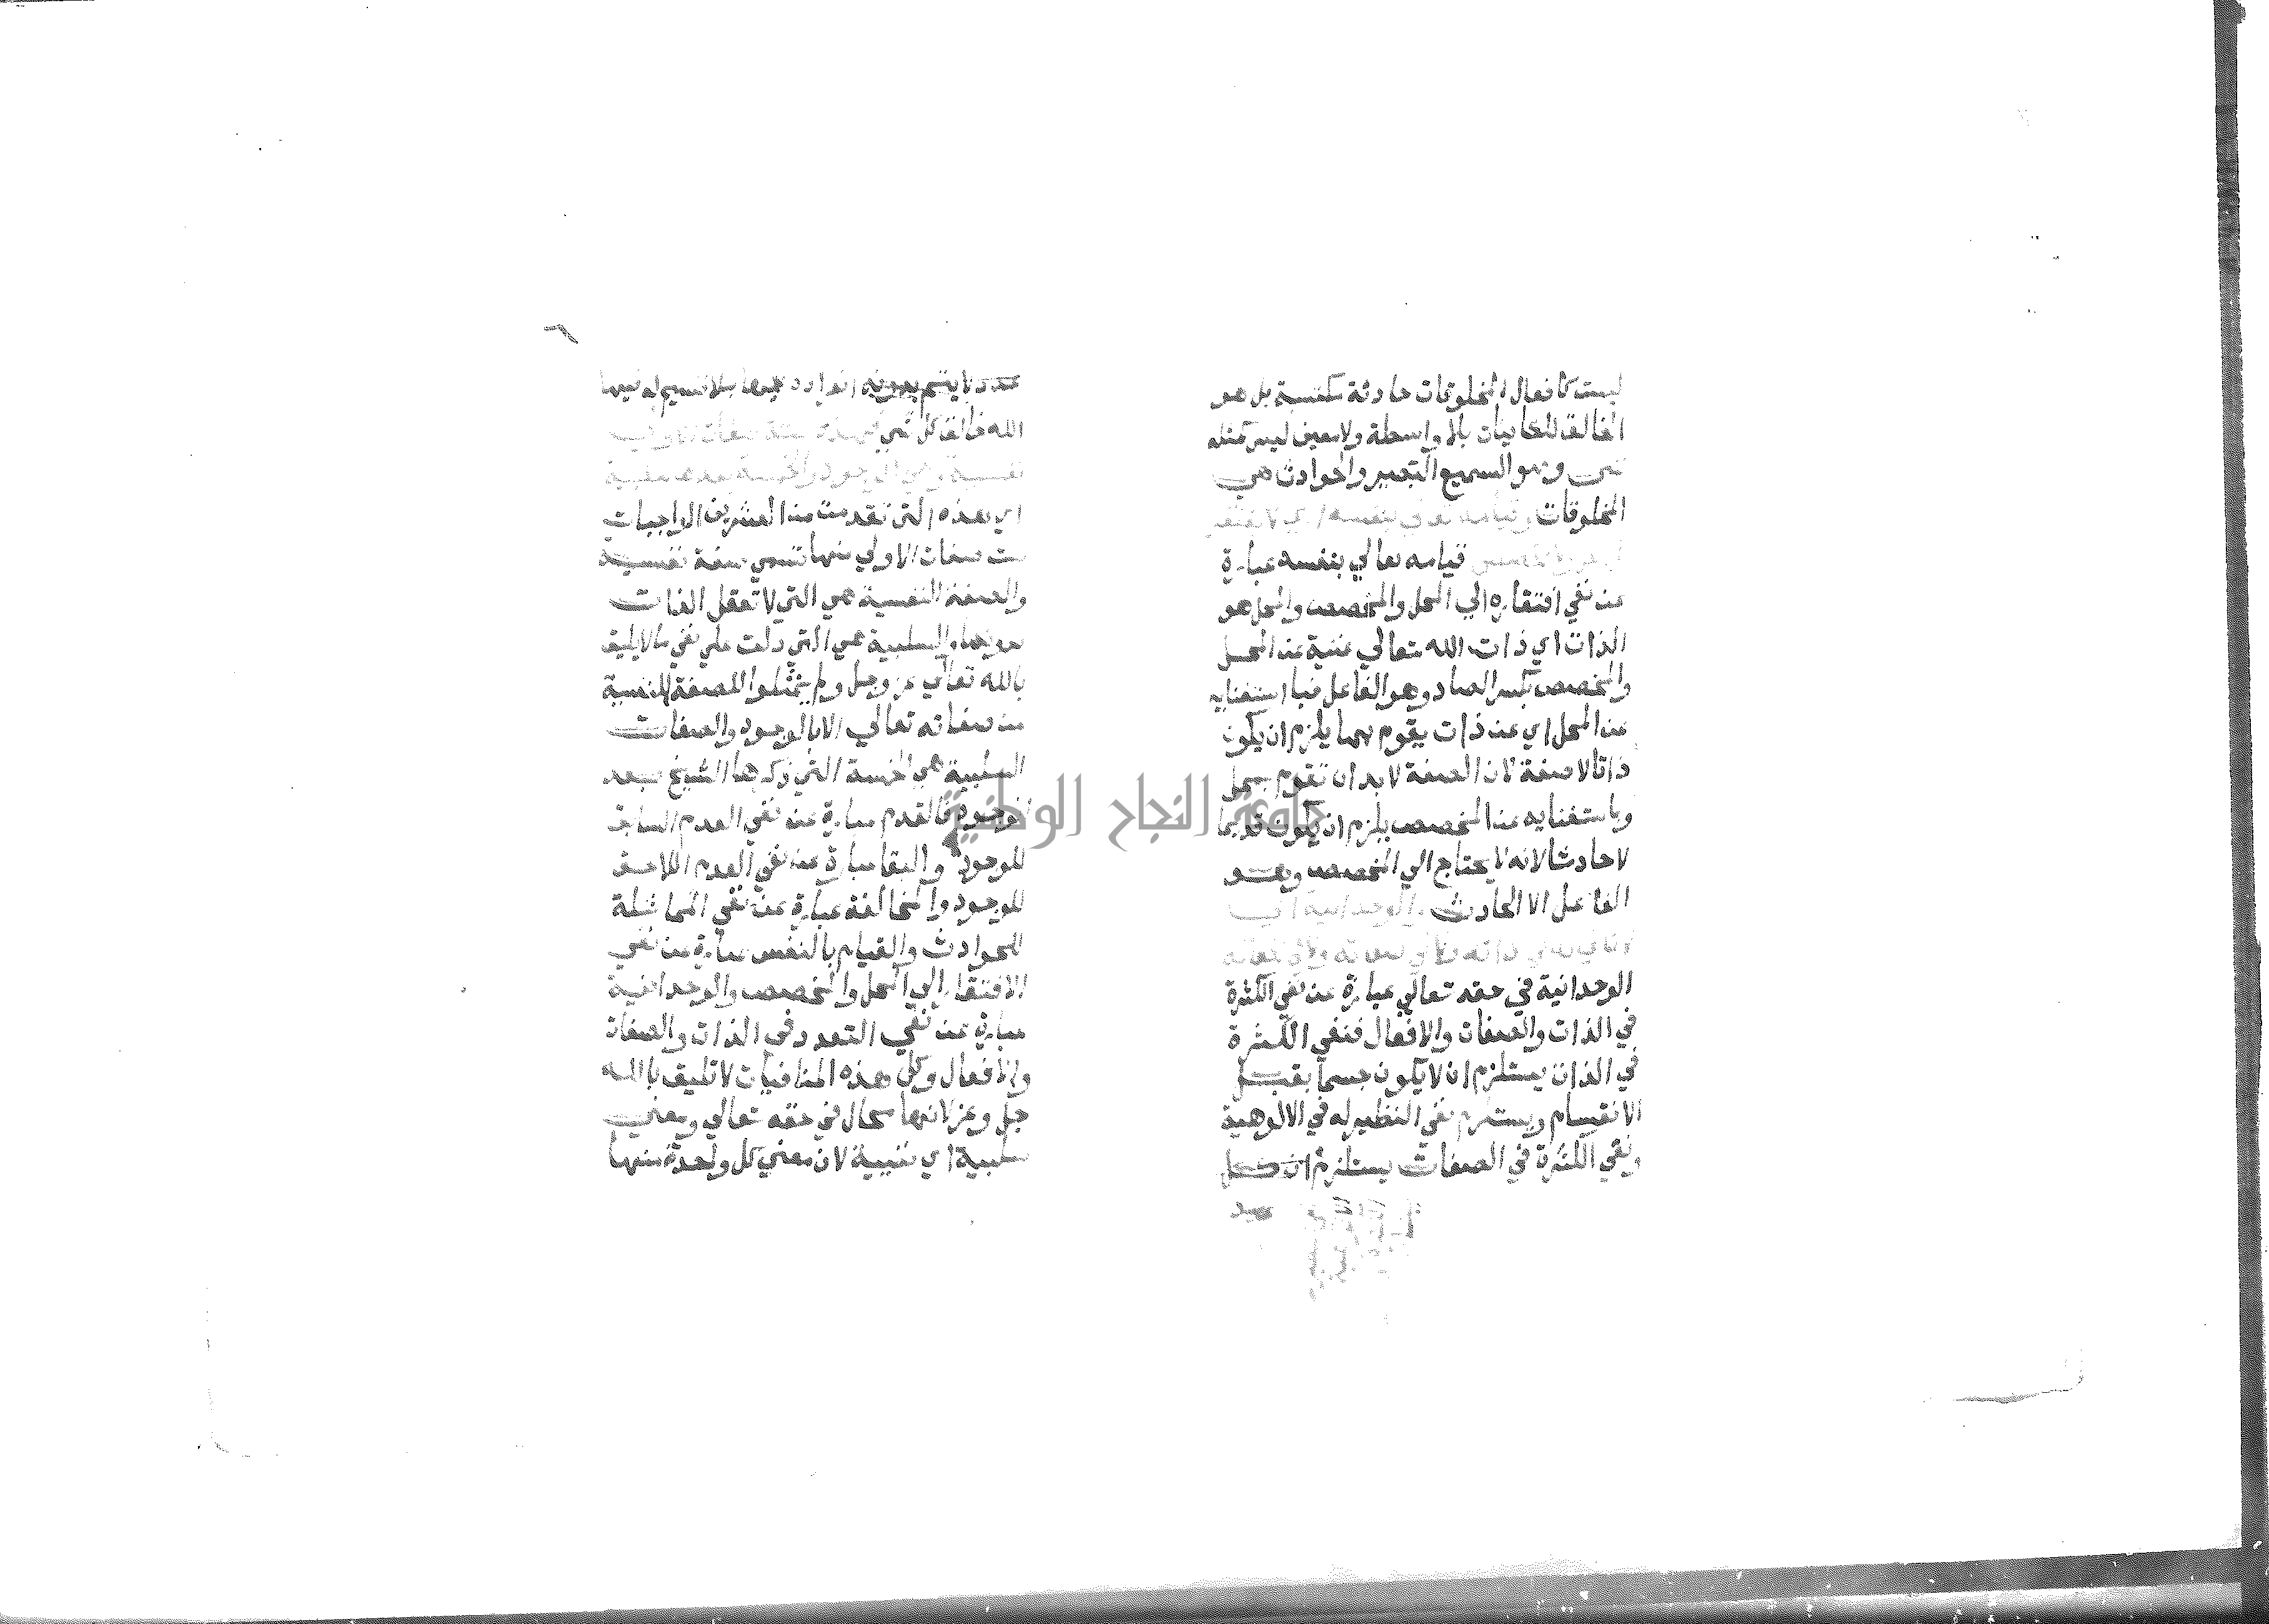 ليست كافعال المخلوقات حادثة مكتسبة بل هو
الخالق للكاينات بلا واسطة ولا معين ليس كمثله
شي وهو السميع البصير والحوادث هي
المخلوقات وقيامه تعالي بنفسه اي لا يفتقر
قيامه تعالي بنفسه عبارة
عن نفي افتقاره الي المحل والمخصص والمحل هو
الذات اي ذات الله تعالي غنية عن المحل
والمخصص بكسر الصاد وهو الفاعل فباستغنايه
عن المحل اي عن ذات يقوم بها يلزم ان يكون
ذاتا لا صفة لان الصفة لا بد ان تقوم بمحل
وباستغنايه عن المخصص يلزم ان يكون قديما
لا حادثا لانه لا يحتاج الي المخصص وهو
الفاعل الا الحادث والوحدانية اي
لا ثاني له في ذاته ولا في صفاته ولا في افعاله
الوحدانية في حقه تعالي عبارة عن نفي الكثرة
في الذات والصفات والافعال فنفي الكثرة
في الذات يستلزم ان لا يكون جسما يقبل
الانقسام ويستلزم نفي النظير له في الالوهية
ونفي الكثرة في الصفات يستلزم ان
٦
الله خالق كل شي
اي هذه التي تقدمت من العشرين الواجبات
ست صفات الاولي منها تسمي صفة نفسية
والصفة النفسية هي التي لا تعقل الذات
بدونها والسلبية هي التي دلت علي نفي ما لا يليق
بالله تعالي عز وجل ولم يمثلوا للصفة النفسية
من صفاته تعالي الا بالوجود والصفات
السلبية هي الخمسة التي ذكرها الشيخ بعد
الوجود فالقدم عبارة عن نفي العدم السابق
للوجود والبقا عبارة عن نفي العدم اللاحق
للوجود والمخالفة عبارة عن نفي المماثلة
للحوادث والقيام بالنفس عبارة عن نفي
الافتقار الي المحل والمخصص والوحدانية
عبارة عن نفي التعدد في الذات والصفات
والافعال وكل هذه المنافيات لا تليق بالله
جل وعز لانها محال في حقه تعالي ومعني
سلبية اي لان معني كل واحدة منها
جامعة النجاح الوطنية